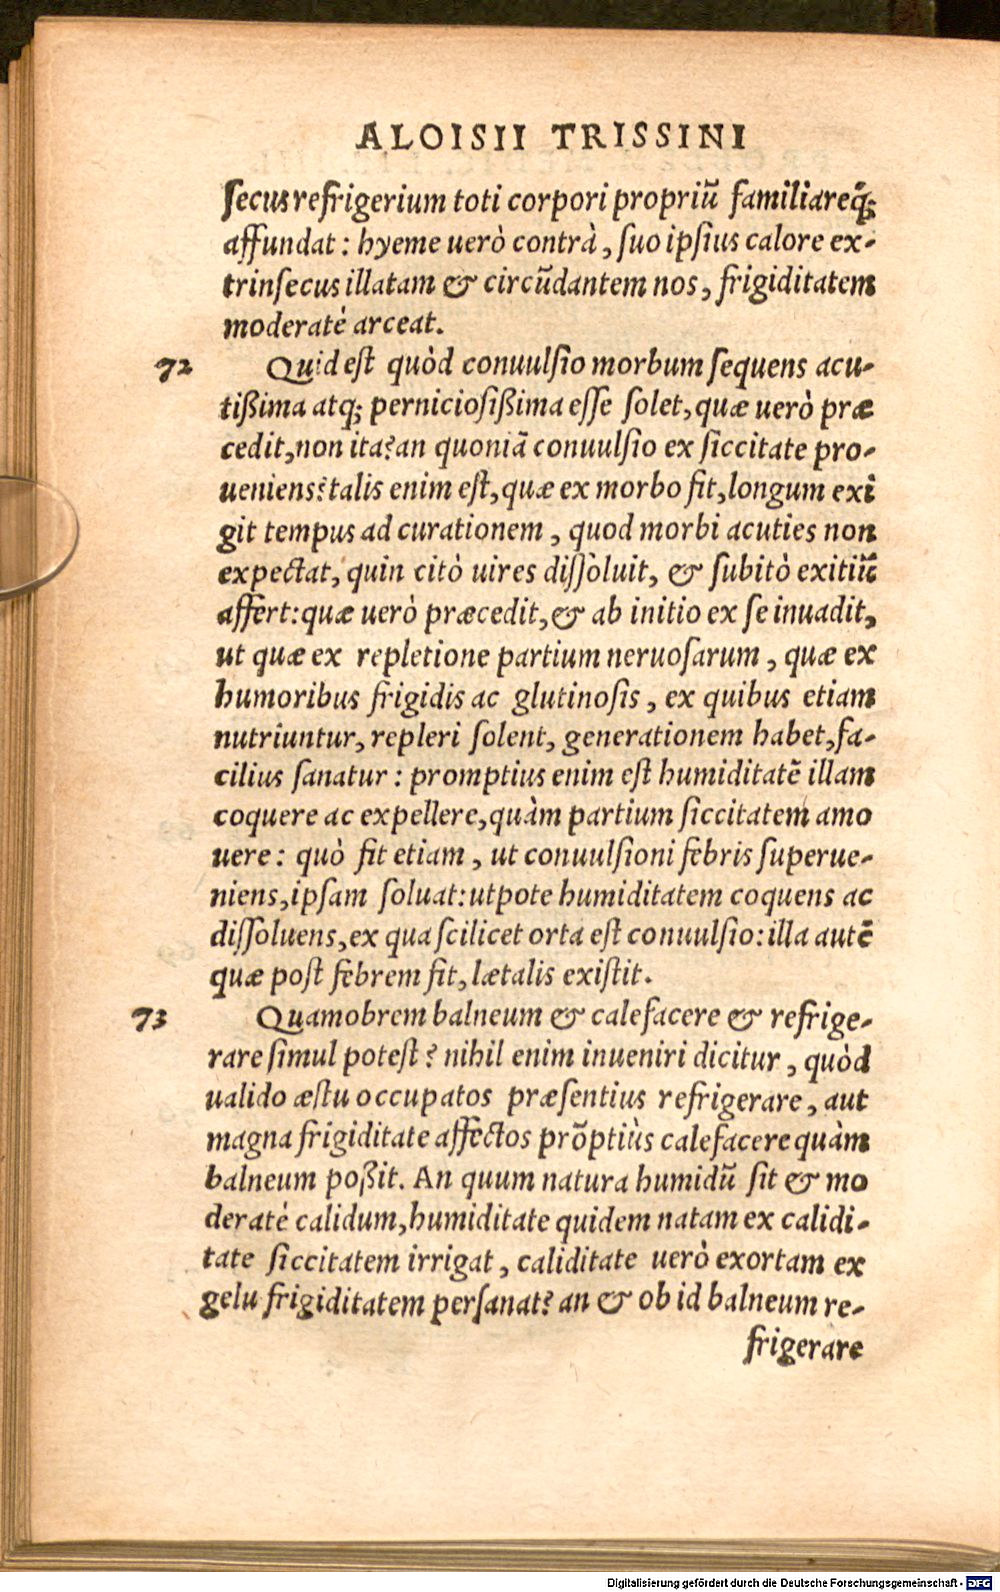 ALOISII TRISSINI
secus refrigerium toti corpori propriũ familiareq́ꝫ
affundat : hyeme uerò contrà , suo ipsius calore ex-
trinsecus illatam & circũdantem nos , frigiditatem
moderatè arceat.
72 Quid est quòd conuulsio morbum sequens acu-
tißima atqꝫ perniciosißima esse solet, quæ uerò præ
cedit, non ita? an quoniã conuulsio ex siccitate pro-
ueniens? talis enim est, quæ ex morbo fit, longum exi
git tempus ad curationem , quod morbi acuties non
expectat, quin citò uires dissoluit, & subitò exitiũ
affert: quæ uerò præcedit, & ab initio ex se inuadit,
ut quæ ex repletione partium neruosarum , quæ ex
humoribus frigidis ac glutinosis , ex quibus etiam
nutriuntur, repleri solent, generationem habet, fa-
cilius sanatur : promptius enim est humiditatẽ illam
coquere ac expellere, quàm partium siccitatem amo
uere : quò fit etiam , ut conuulsioni febris superue-
niens, ipsam soluat: utpote humiditatem coquens ac
dissoluens, ex qua scilicet orta est conuulsio: illa autẽ
quæ post febrem fit, lætalis existit.
73 Quamobrem balneum & calefacere & refrige-
rare simul potest ? nihil enim inueniri dicitur , quòd
ualido æstu occupatos præsentius refrigerare, aut
magna frigiditate affectos prõptiùs calefacere quàm
balneum poßit. An quum natura humidũ sit & mo
deratè calidum, humiditate quidem natam ex calidi-
tate siccitatem irrigat , caliditate uerò exortam ex
gelu frigiditatem persanat? an & ob id balneum re-
frigerare
Digitalisierung gefördert durch die Deutsche Forschungsgemeinschaft - DFG